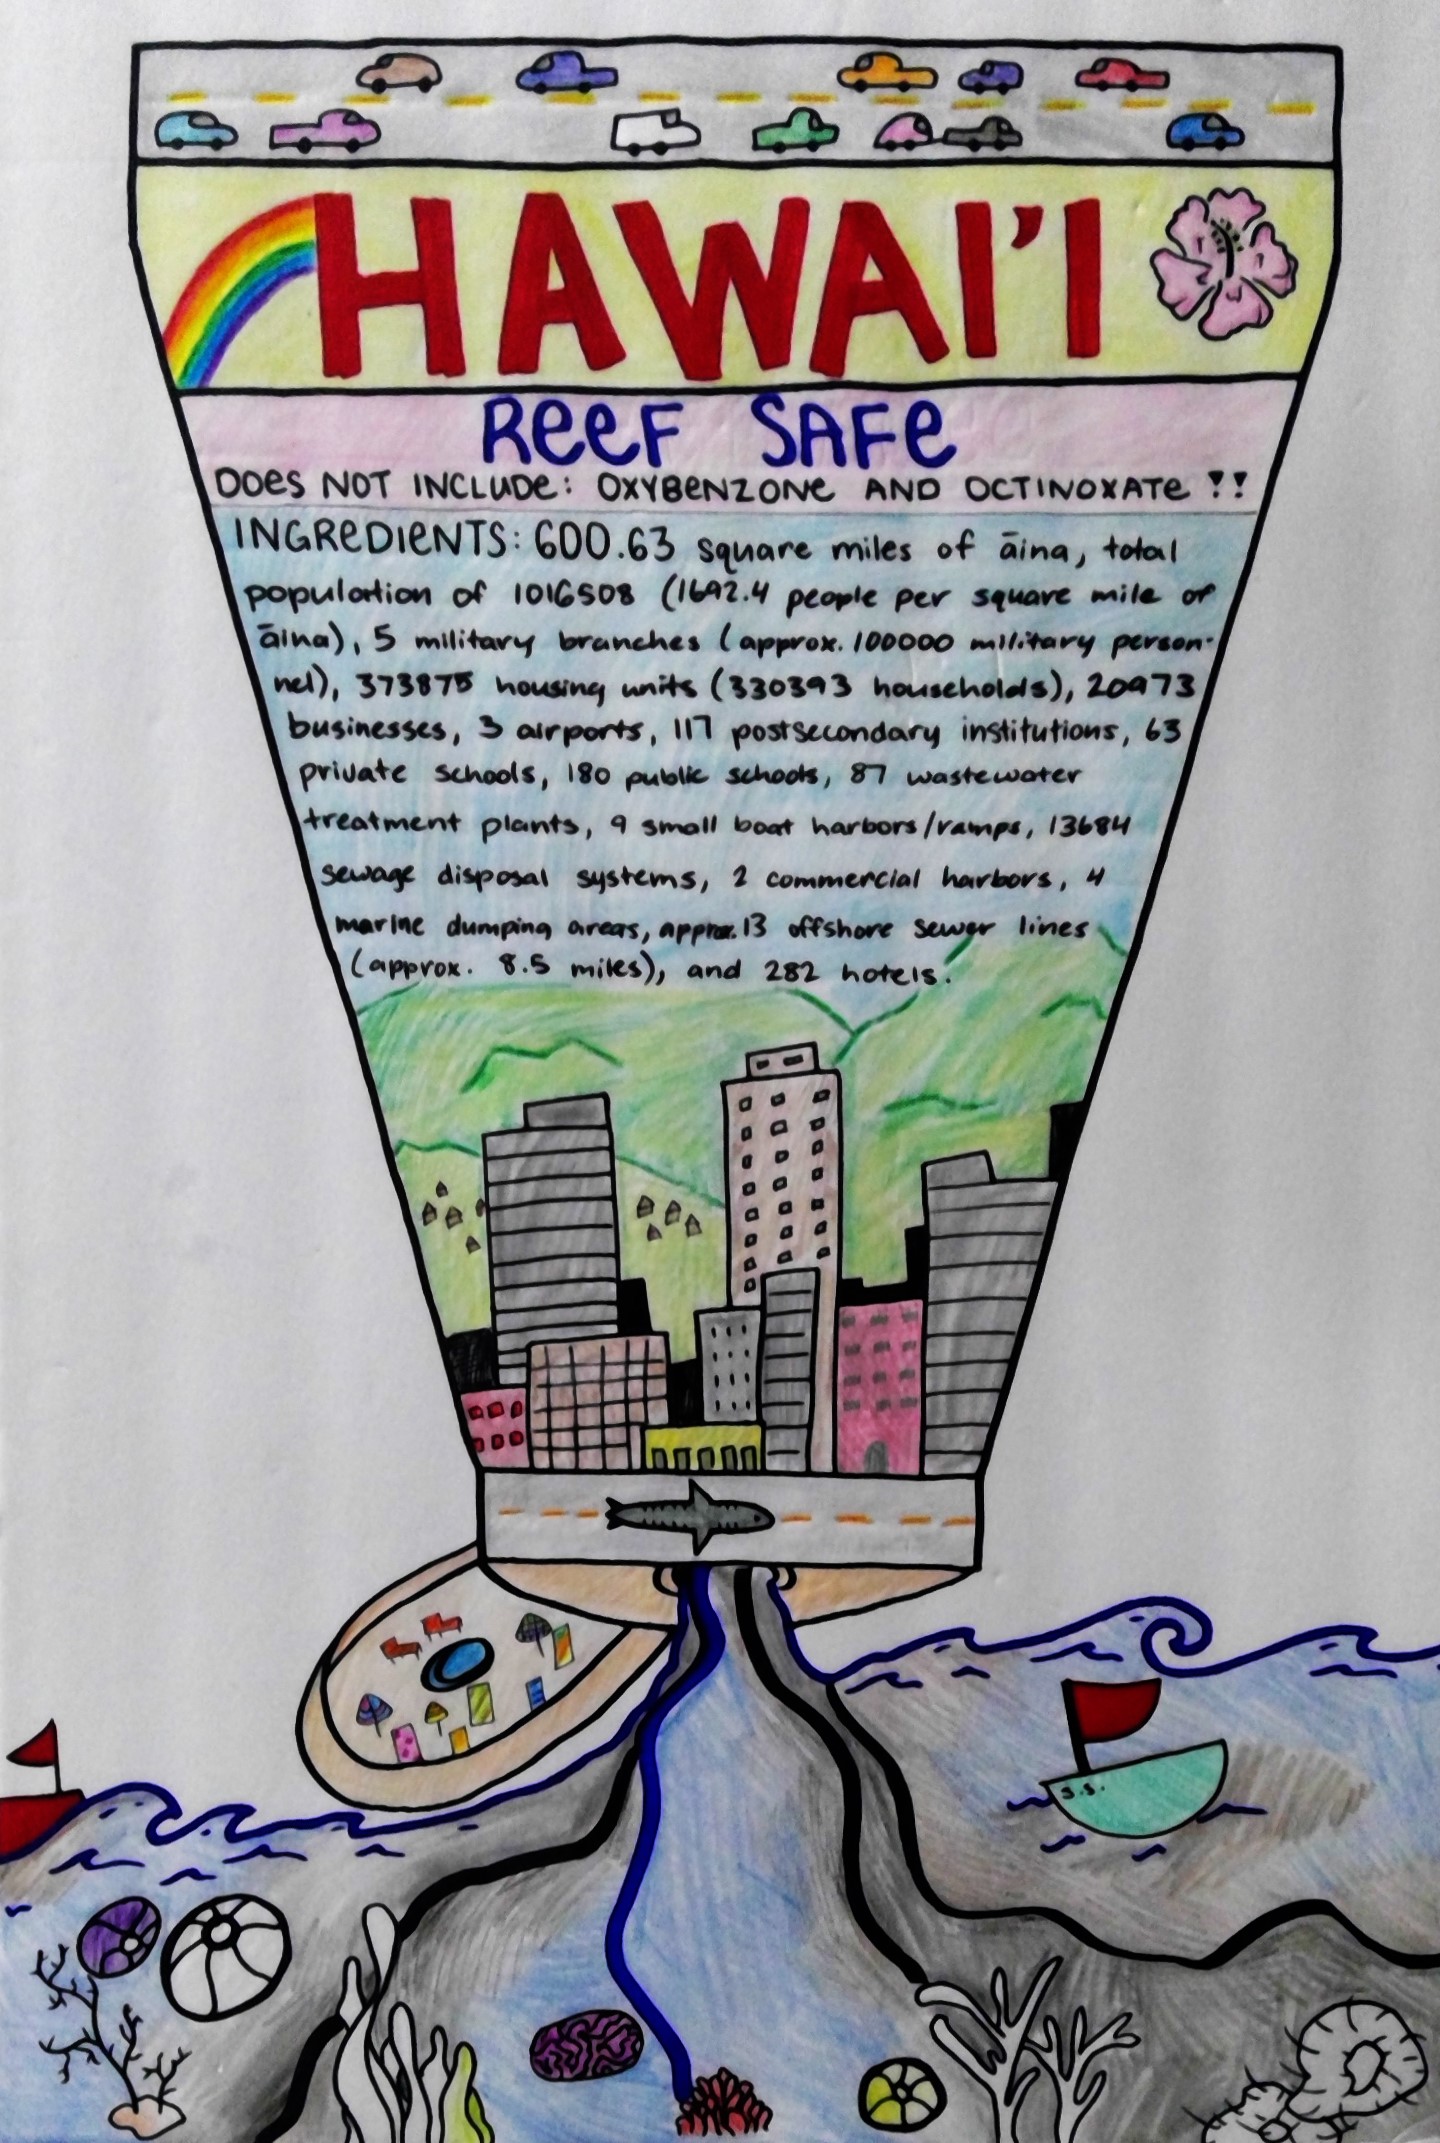 HAWAI'I
REEF SAFE
DOES NOT INCLUDE: OXYBENZONE AND OCTINOXATE !!
INGREDIENTS: 600.63 square miles of āina, total
population of 1016508 (1692.4 people per square mile of
āina), 5 military branches (approx. 100000 military person-
nel), 373875 housing units (330393 households), 20973
businesses, 3 airports, 117 postsecondary institutions, 63
private schools, 180 public schools, 87 wastewater
treatment plants, 9 small boat harbors/ramps, 13684
sewage disposal systems, 2 commercial harbors, 4
marine dumping areas, approx. 13 offshore sewer lines
(approx. 8.5 miles), and 282 hotels.
S.S.